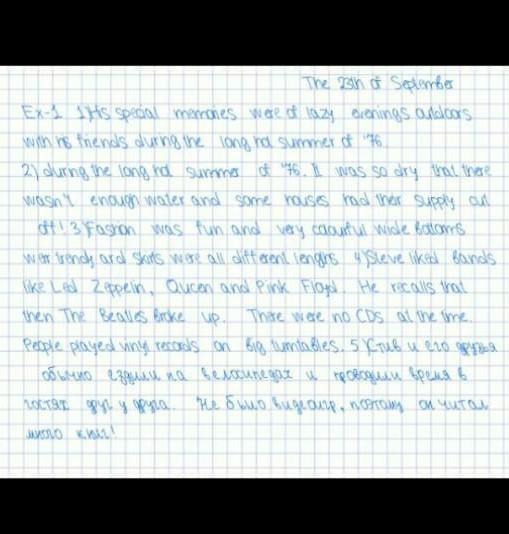 The 23th of September
Ex-1 1) His special memories were of lazy evenings outdoors
with his friends during the long hot summer of '76.
2) during the long hot summer of '76. It was so dry that there
wasn't enough water and some houses had their supply cut
off! 3) Fashion was fun and very colourful wide bottoms
were trendy and skirts were all different lengths 4) Steve liked bands
like Led Zeppelin, Queen and Pink Floyd. He recalls that
then The Beatles broke up. There were no CDs at the time.
People played vinyl records on big turntables. 5) Стив и его друзья
обычно ездили на велосипедах и проводили время в
гостях друг у друга. Не было видеоигр, поэтому он читал
много книг!